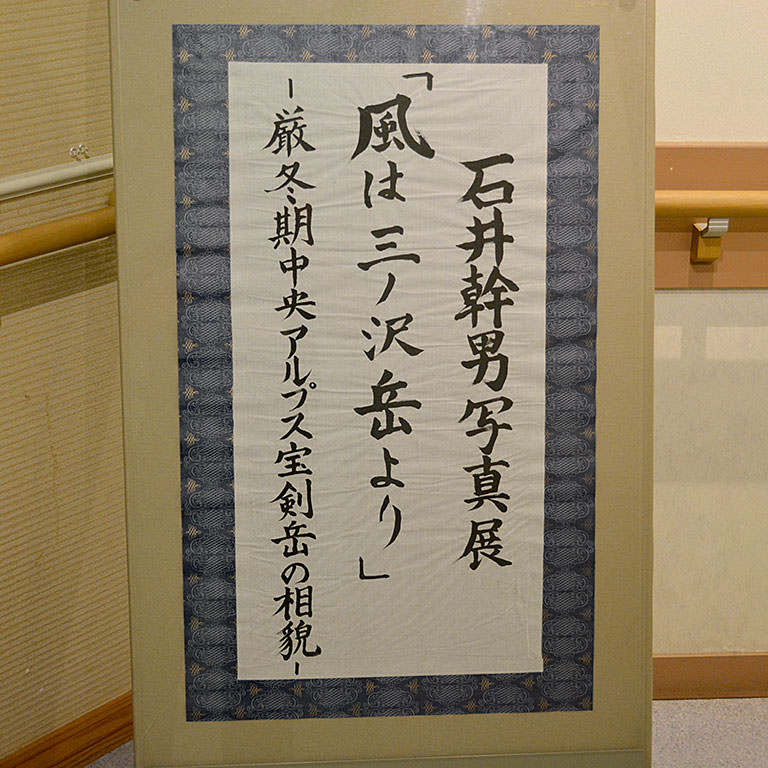 石井幹男写真展
「風は三ノ沢岳より」
-厳冬期中央アルプス宝剣岳の相貌-